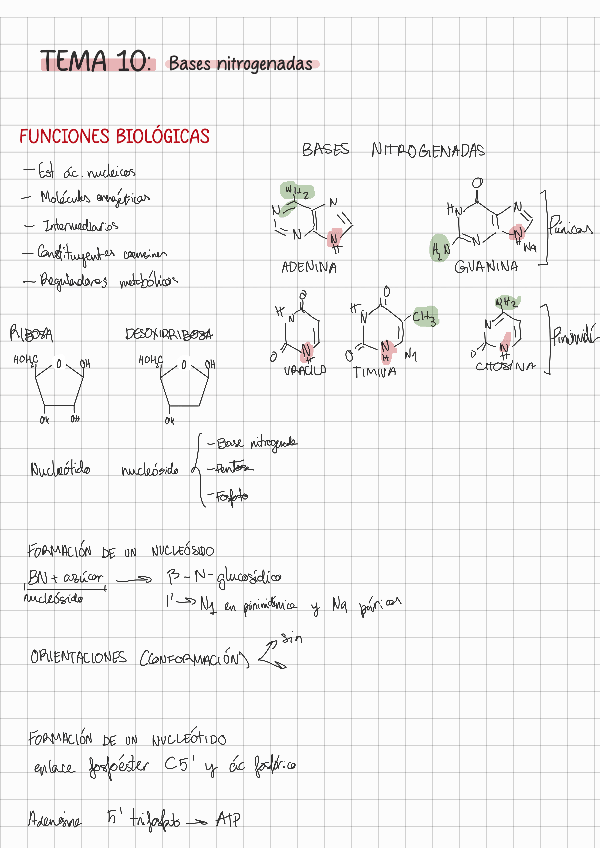 TEMA 10: Bases nitrogenadas
FUNCIONES BIOLÓGICAS
- Est ác. nucleicos
- Moléculas energéticas
- Intermediarios
- Constituyentes coenzimas
- Reguladores metabólicos
BASES NITROGENADAS
NH2
N
N
N
N
H
ADENINA
O
HN
N
H2N
N
N
H
N9
GUANINA
Púricas
O
H
N
O
N
H
URACILO
O
H
N
CH3
O
N
H
N1
TIMINA
NH2
N
O
N
H
CITOSINA
RIBOSA
HOH2C
O
OH
OH
OH
DESOXIRRIBOSA
HOH2C
O
OH
OH
Nucleótido nucleósido
- Base nitrogenada
- Pentosa
- Fosfato
FORMACIÓN DE UN NUCLEÓSIDO
BN + azúcar → β-N-glucosídico
nucleósido
1' → N1 en y N9 púricas
ORIENTACIONES (CONFORMACIÓN)
sin
FORMACIÓN DE UN NUCLEÓTIDO
enlace fosfoéster C5' y ác fosfórico
5' trifosfato → ATP